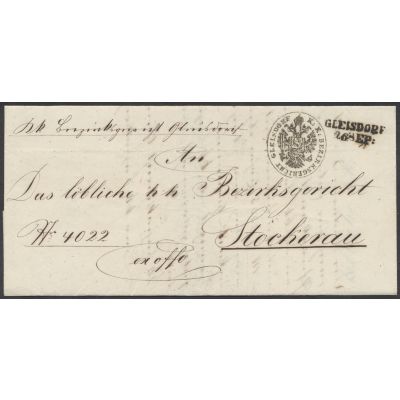 K k Bezirksgericht Gleisdorf
K. K. BEZIRKSGERICHT GLEISDORF
GLEISDORF
26 SEP:
An
Das löbliche k k Bezirksgericht
Stockerau
Nr 4022
ex offo